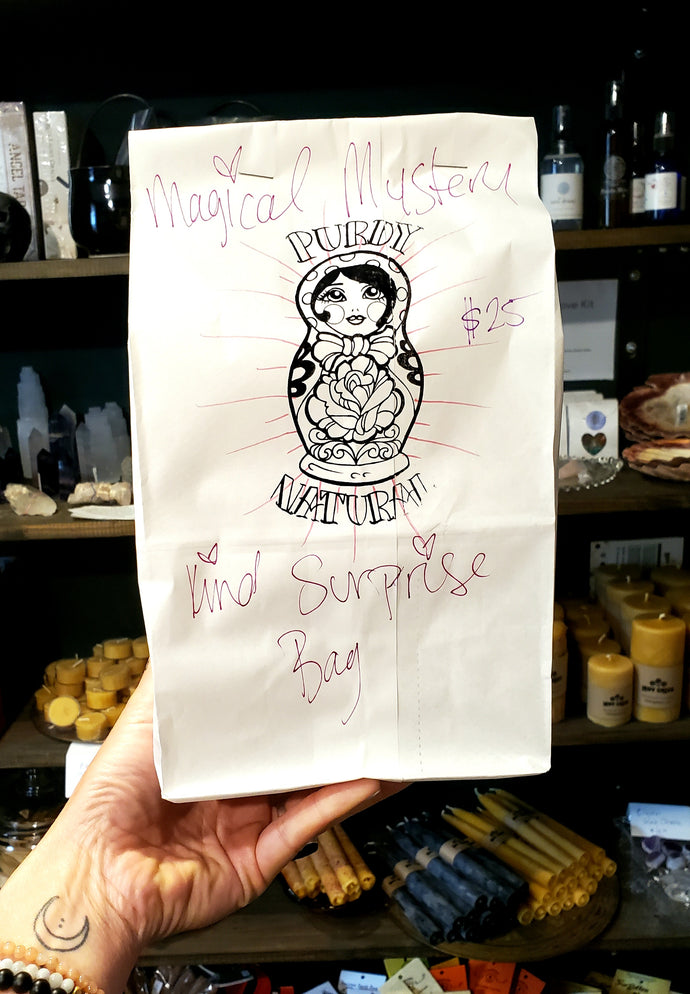 Magical Mystery
PURDY
$25
NATURAL
Kind Surprise
Bag
ANGEL